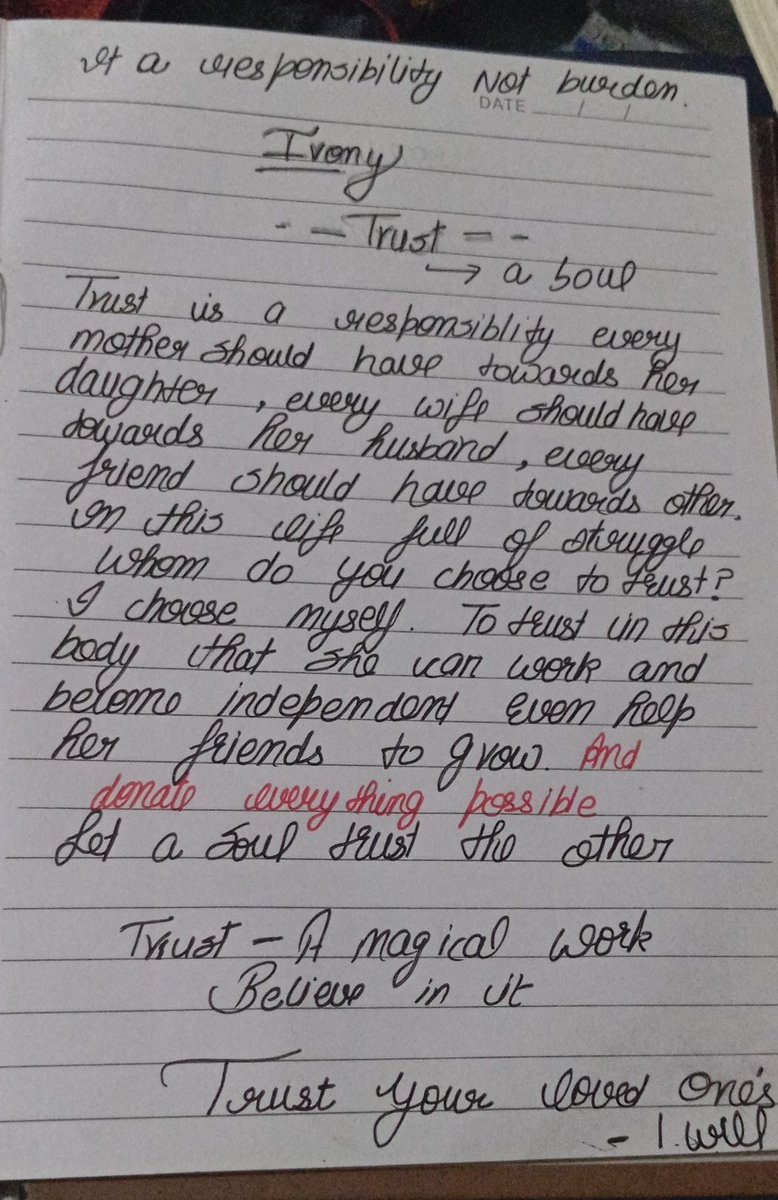 It a responsibility Not burden.
DATE / /
Irony
- - Trust - -
→ a soul
Trust is a responsiblity every
mother should have towards her
daughter, every wife should have
towards her husband, every
friend should have towards other.
In this life full of struggle
whom do you choose to trust?
I choose myself. To trust in this
body that she can work and
become independent even help
her friends to grow. And
donate everything possible
Let a soul trust the other
Trust - A magical work
Believe in it
Trust your loved one's
- I. will